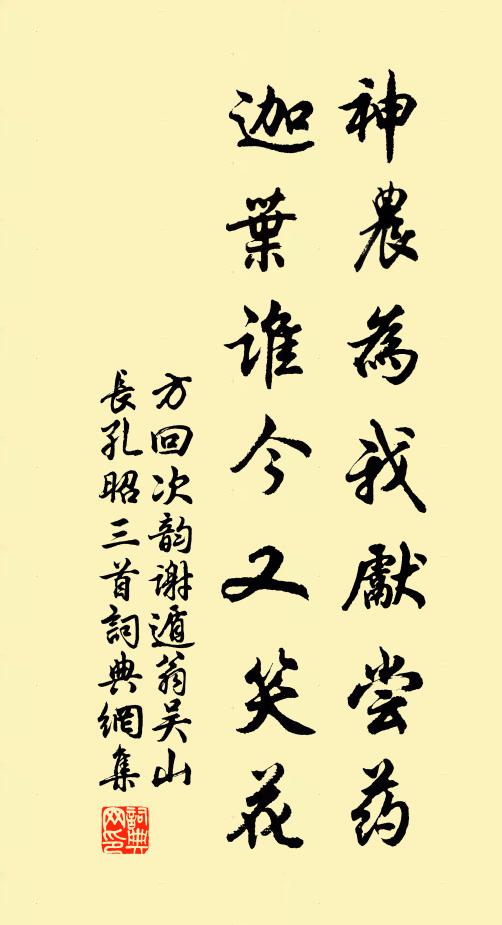 神農為我獻尝药
迦葉谁今又笑花
方回次韵谢遁翁吴山
長孔昭三首詞典網集
詞典
网印